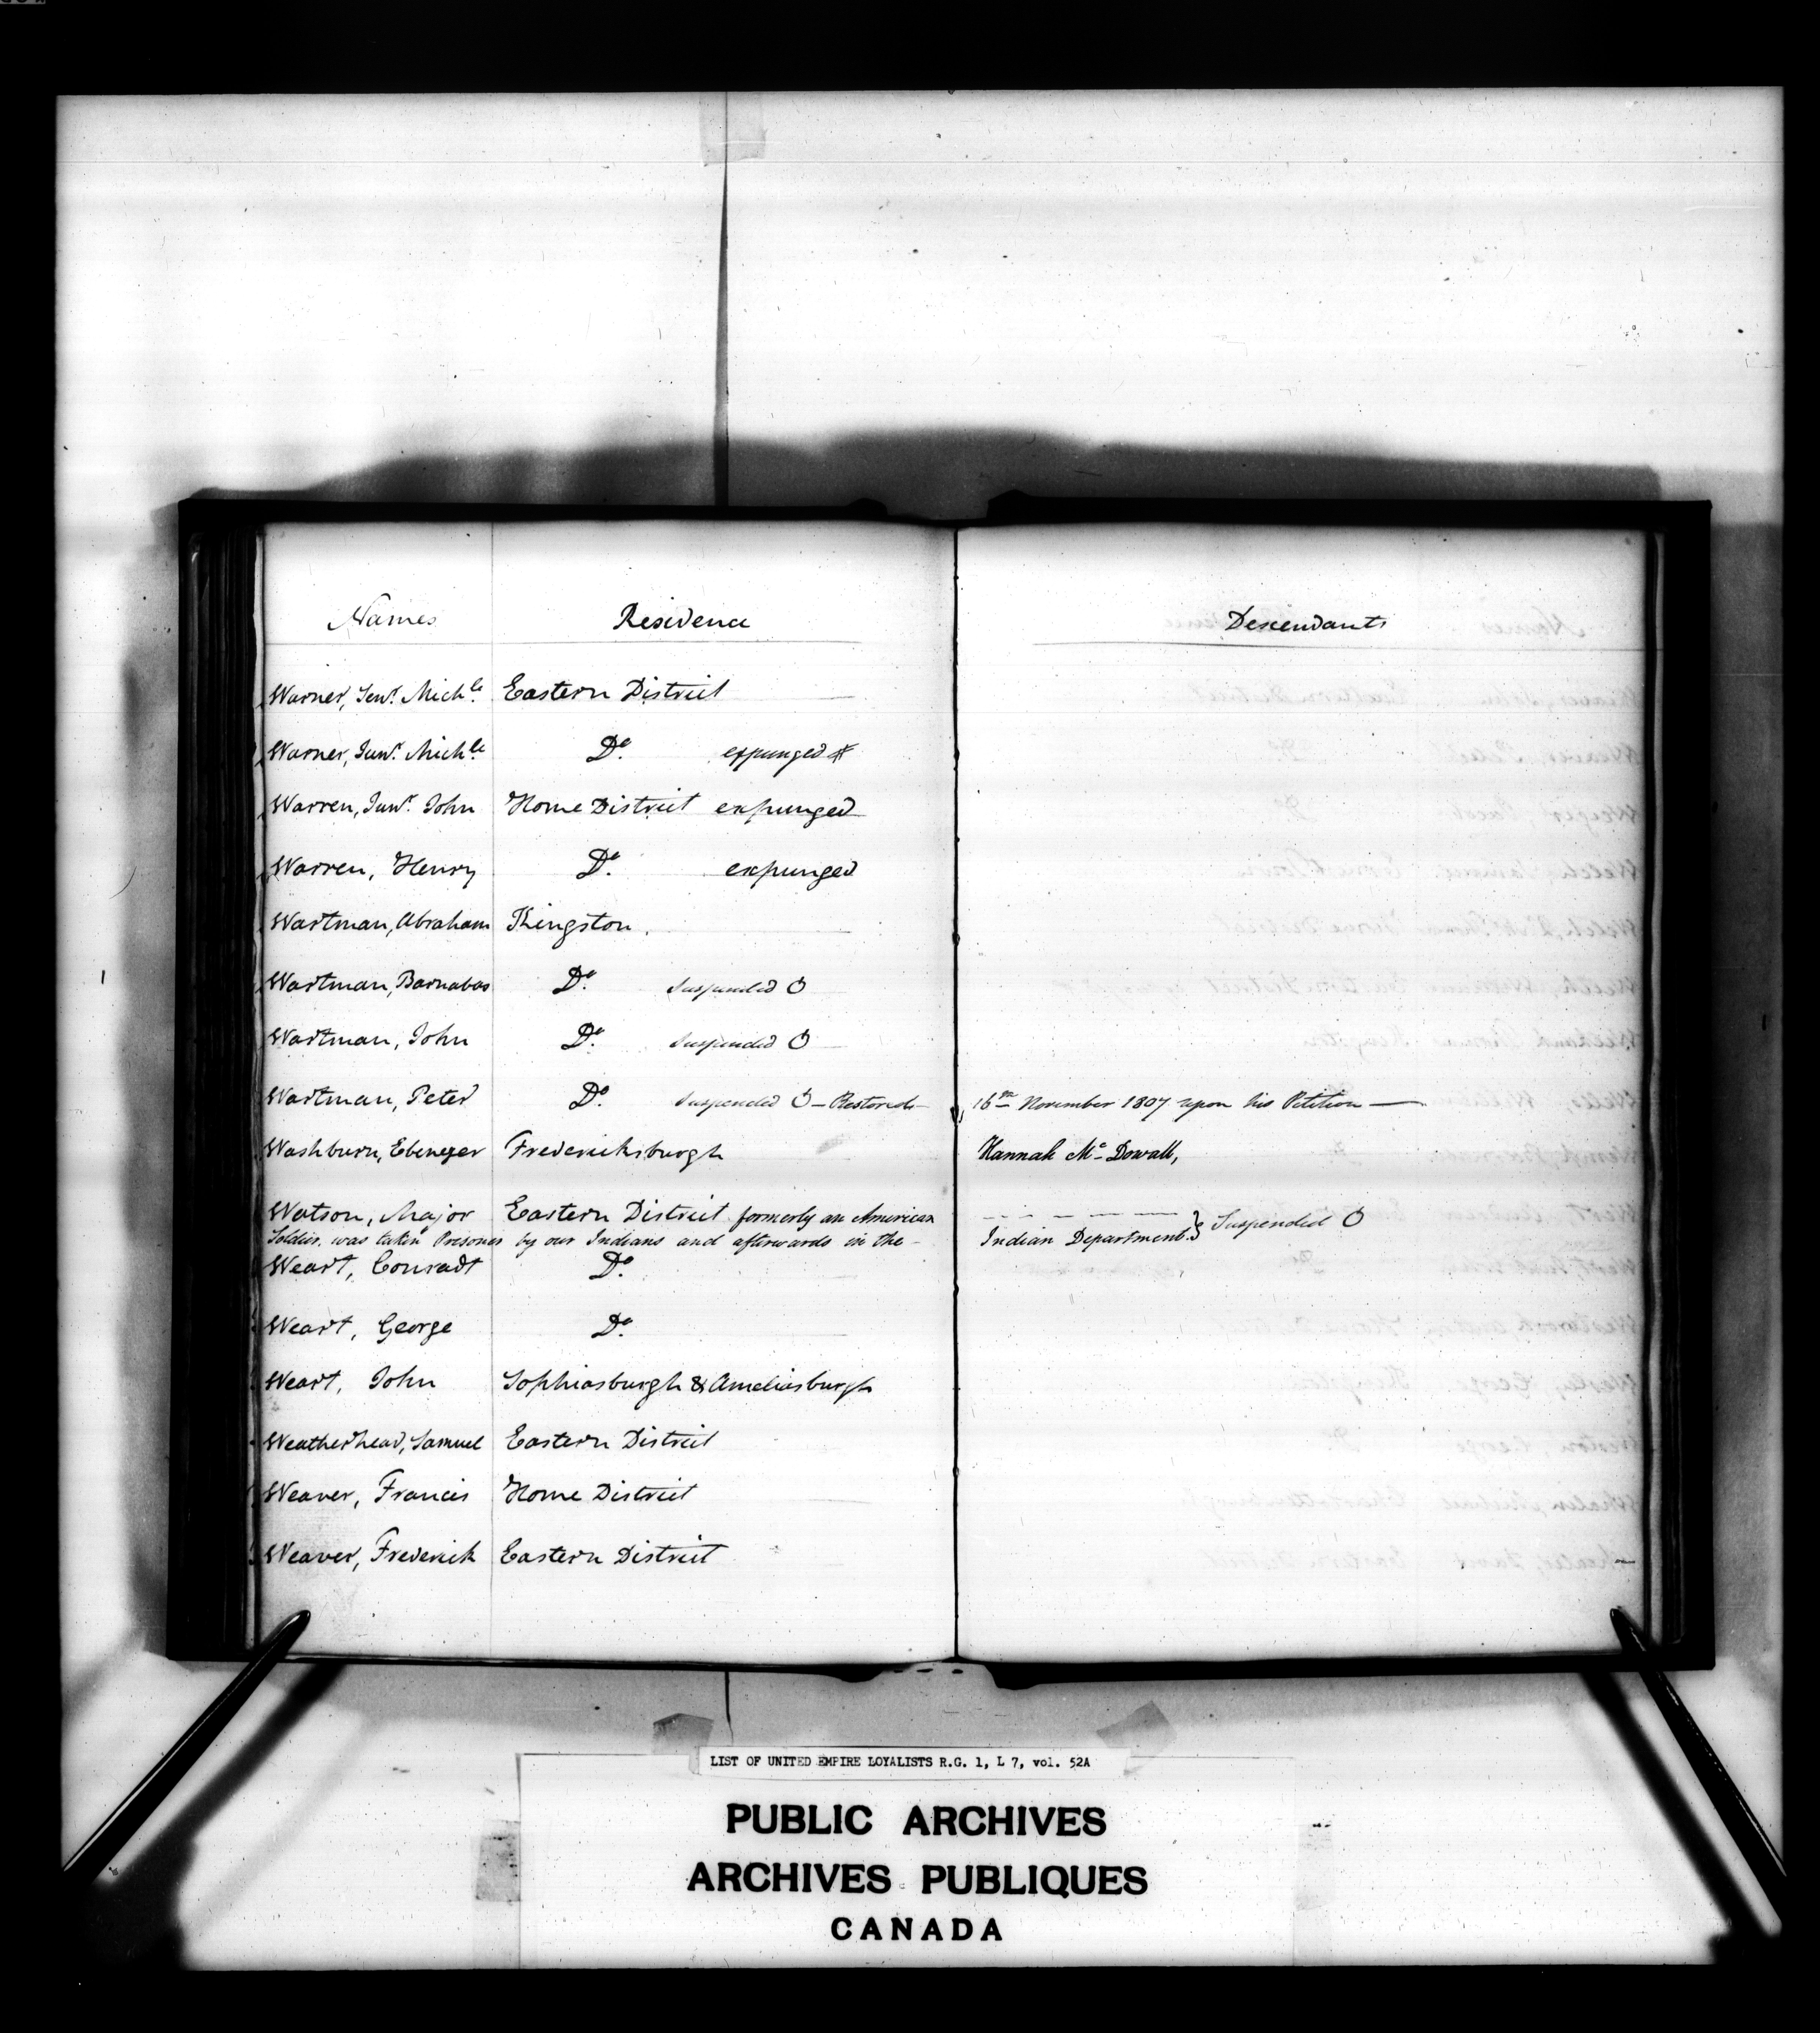 Names Residence Descendants
Warner, Senr. Michle. Eastern District
Warner, Junr. Michle. Do. expunged #
Warren, Junr. John Home District expunged
Warren, Henry Do. expunged
Wartman, Abraham Kingston.
Wartman, Barnabas Do. Suspended O
Wartman, John Do. Suspended O
Wartman, Peter Do. Suspended O – Restored – 16th November 1807 upon his Petition —
Washburn, Ebenezer Fredericksburgh Hannah Mc Dowall,
Watson, Major Eastern District formerly an American
Soldier. was taken Prisoner by our Indians and afterwards in the – Indian Department. } Suspended O
Weart, Conradt Do.
Weart, George Do.
Weart, John Sophiasburgh & Ameliasburgh
Weatherhead, Samuel Eastern District
Weaver, Francis Home District
Weaver, Frederick Eastern District
LIST OF UNITED EMPIRE LOYALISTS R.G. 1, L 7, vol. 52A
PUBLIC ARCHIVES
ARCHIVES PUBLIQUES
CANADA